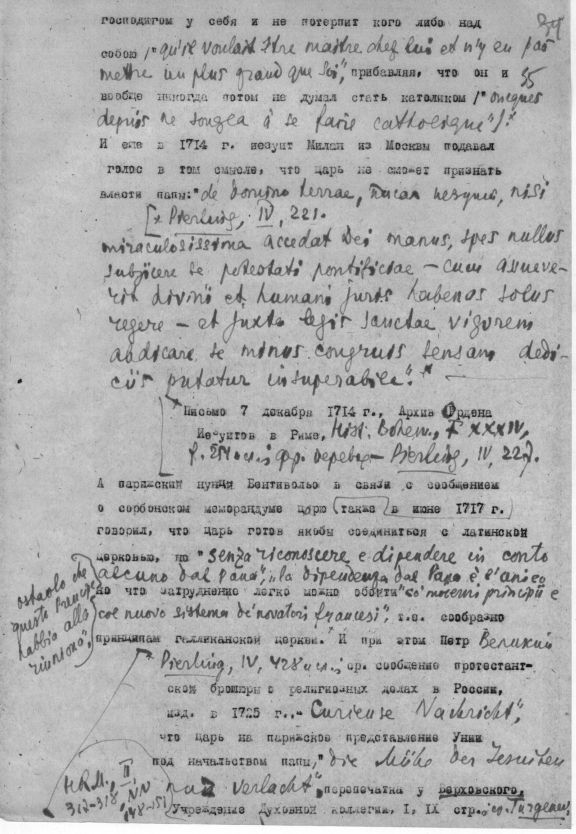 34
господигом у себя и не потерпит кого либо над
собою /"qu'il voulait être maître chez lui et n'y en pas
mettre un plus grand que soi", прибавляя, что он и
35
вообще никогда потом не думал стать католиком /"oncques
depuis ne songea à se faire catholique"/.*
И еще в 1714 г. иезуит Милан из Москвы подавал
голос в том смысле, что царь не сможет признать
власти папы: "de domino terrae, nisi
[* Pierling, IV, 221.
miraculosissima accedat Dei manus, spes nullus
subjicere se potestati pontificiae – cum assueve-
rit divini et humani juris habenas solus
regere – et juxta legis sanctae vigorem
abdicare se minus congruis sensam dedi-
ciis putatur insuperabile".*
*Письмо 7 декабря 1714 г., Архив Ордена
Иезуитов в Риме, Hist. Bohem., F XXXIV,
f. фр. перевод – Pierling, IV, 227.
А парижский нунций Бентивольо в связи с сообщением
о сорбонском меморандуме царю (также) в июне 1717 г.
говорил, что царь готов якобы соединиться с латинской
церковью, но "senza riconoscere e dipendere in conto
alcuno dal Papa", "la dipendenza dal Papa è l'unico
ostacolo che
questo Principe
habbia alla
riunione".
но что затруднение легко можно обойти "co' moderni principii e
col nuovo sistema de' novatori francesi", т.е. сообразно
принципам галликанской церкви.* И при этом Петр Великий
* Pierling, IV, 428 и сл., ср. сообщение протестант-
ской брошюры о религиозных делах в России,
изд. в 1725 г., – Curieuse Nachricht",
что царь на парижское представление Унии
под начальством папы, "die Mühe der Jesuiten
nur verlacht", перепечатка у Верховского,
Учреждение Духовной коллегии, I, IX стр., ср. Turgenev,
H.R.M., II,
317-318, NN
148-151